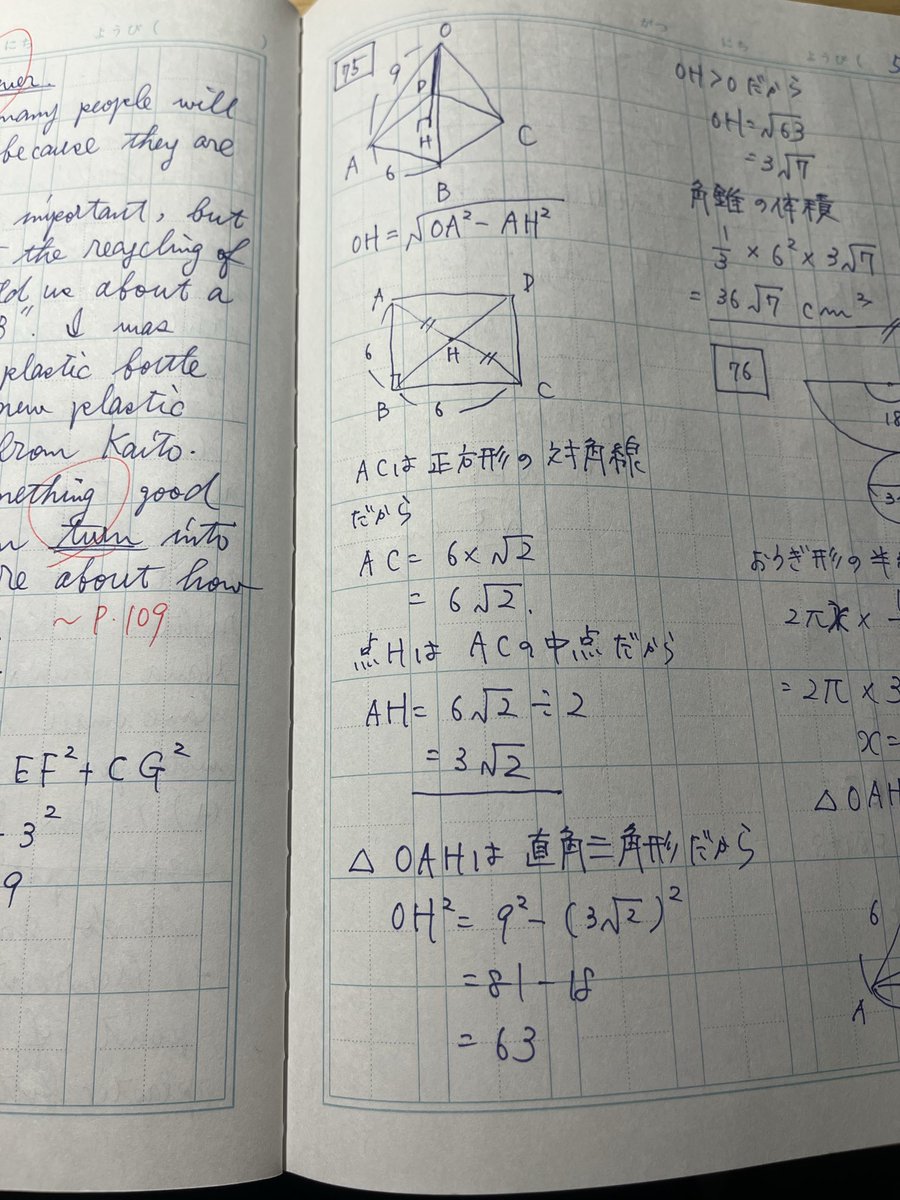 にち ようび( )
many people will
because they are
important, but
the recycling of
us about a
I was
plastic bottle
plastic
from Kaito.
good
turn into
about how
~P.109
EF²+CG²
3²
9
がつ にち ようび( 5
75
O
9
D
H
A
6
B
C
OH=√OA²-AH²
A
D
6
H
B
6
C
ACは正方形の対角線
だから
AC= 6×√2
= 6√2.
点HはACの中点だから
AH= 6√2÷2
=3√2
△OAHは直角三角形だから
OH²= 9²-(3√2)²
=81-18
= 63
OH>0だから
OH=√63
=3√7
角錐の体積
1/3 × 6² × 3√7
= 36√7 cm³
76
18
おうぎ形の半
=2π × 3
x=
△OAH
6
A